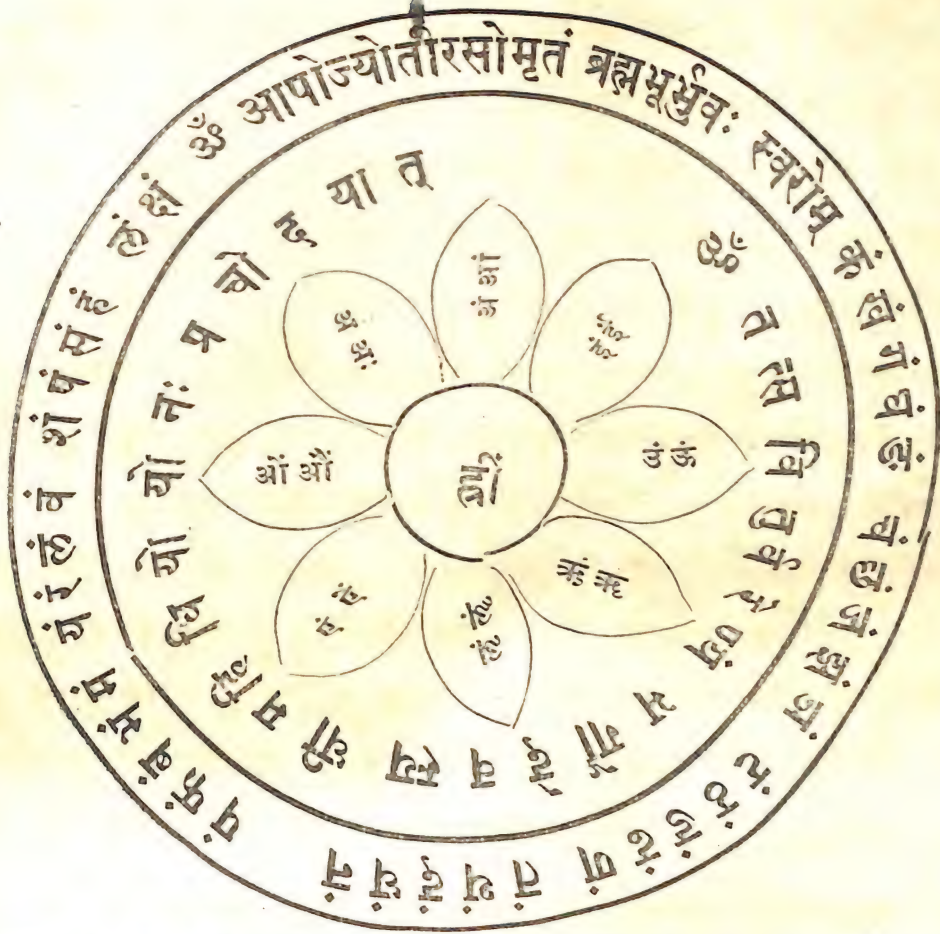 ॐ आपोज्योतीरसोमृतं ब्रह्मभूर्भुवः स्वरोम् कं खं गं घं ङं चं छं जं झं ञं टं ठं डं ढं णं तं थं दं धं नं पं फं बं भं मं यं रं लं वं शं षं सं हं लं क्षं
ॐ त त्स वि तु र्व रे ण्यं भ र्गो दे व स्य धी म हि धि यो यो नः प्र चो द या त्
अं आं
इं ईं
उं ऊं
ऋं ऋ
लृं लॄं
एं ऐं
ओं औं
अ अः